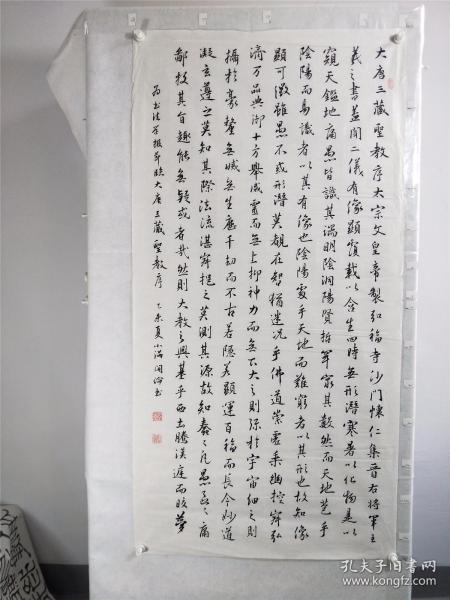 大唐三藏聖教序太宗文皇帝製弘福寺沙門懷仁集晉右將軍王
羲之書蓋聞二儀有像顯覆載以含生四時無形潛寒暑以化物是以
窺天鑑地庸愚皆識其端明陰洞陽賢哲罕窮其數然而天地苞乎
陰陽而易識者以其有像也陰陽處乎天地而難窮者以其形也故知像
顯可徵雖愚不惑形潛莫覩在智猶迷況乎佛道崇虛乘幽控寂弘
濟万品典御十方舉威靈而無上抑神力而無下大之則弥於宇宙細之則
攝於豪氂無滅無生歷千劫而不古若隱若顯運百福而長今妙道
凝玄遵之莫知其際法流湛寂挹之莫測其源故知蠢々凡愚區々庸
鄙投其旨趣能無疑或者哉然則大教之興基乎西土騰漢庭而皎夢
為書法學報臨大唐三藏聖教序 乙未夏小滿書
孔夫子旧书网
www.kongfz.com